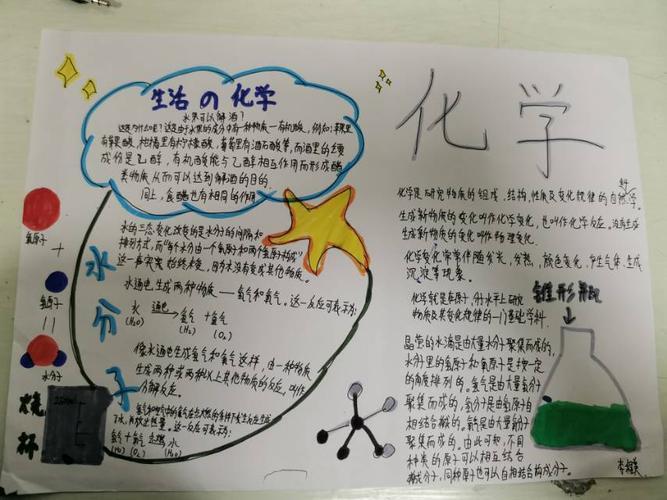 生活の化学
水果可以解酒?
这是为什么呢?这是由于水果的成分中有一种物质—有机酸,例如:苹果里
有苹果酸,柑橘里有柠檬酸,葡萄里有酒石酸等,而酒里的主要
成份是乙醇,有机酸能与乙醇相互作用而形成酯
类物质,从而可以达到解酒的目的。
同上,食醋也有相同的作用。
水分子
水的三态变化改变的是水分子的间隔和
排列方式,而“每个水分由一个氧原子和两个氢原子构成”
这一事实始终未变,因为水没有变成其他物质。
水通电生成两种物质——氢气和氧气。这一反应可表示为:
水 通电→ 氢气+氧气
(H₂O) (H₂) (O₂)
像水通电生成氢气和氧气这样,由一种物质
生成两种或两种以上其他物质的反应,叫作
分解反应。
氢气 + 氧气 点燃→ 水
(H₂) (O₂) (H₂O)
氧原子
+
氢原子
=
水分子
烧杯
化学
化学是研究物质的组成、结构、性质及变化规律的自然科学。
生成新物质的变化叫作化学变化,也叫作化学反应。没有生成
生成新物质的变化叫作物理变化。
化学变化常常伴随发光、放热、颜色变化、产生气体、生成
沉淀等现象。
化学就是在原子、分子水平上研究
物质及其变化规律的一门基础学科.
锥形瓶
晶莹的水滴是由大量水分子聚集而成的,
水分子里的氢原子和氧原子是按一定
的角度排列的。氢气是由大量氢分子
聚集而成的,氢分子是由氢原子自
相结合成的。氧气是由大量氧分子
聚集而成的。由此可知,不同
种类的原子可以相互结合
构成分子,同种原子也可以自相结合构成分子。